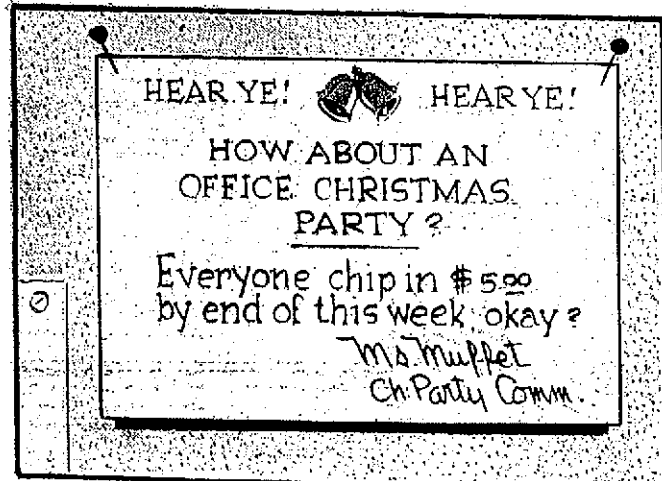 HEAR YE! HEAR YE!
HOW ABOUT AN
OFFICE CHRISTMAS
PARTY?
Everyone chip in $5.00
by end of this week, okay?
Ms. Muffet
Ch. Party Comm.